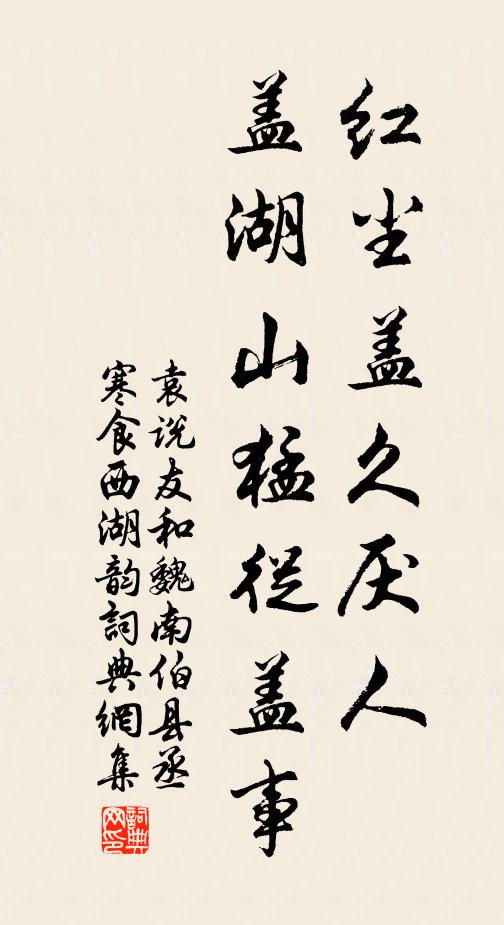 红尘盖久厌人
盖湖山猛从盖事
袁说友和魏南伯县丞
寒食西湖韵词典網集
詞典网印